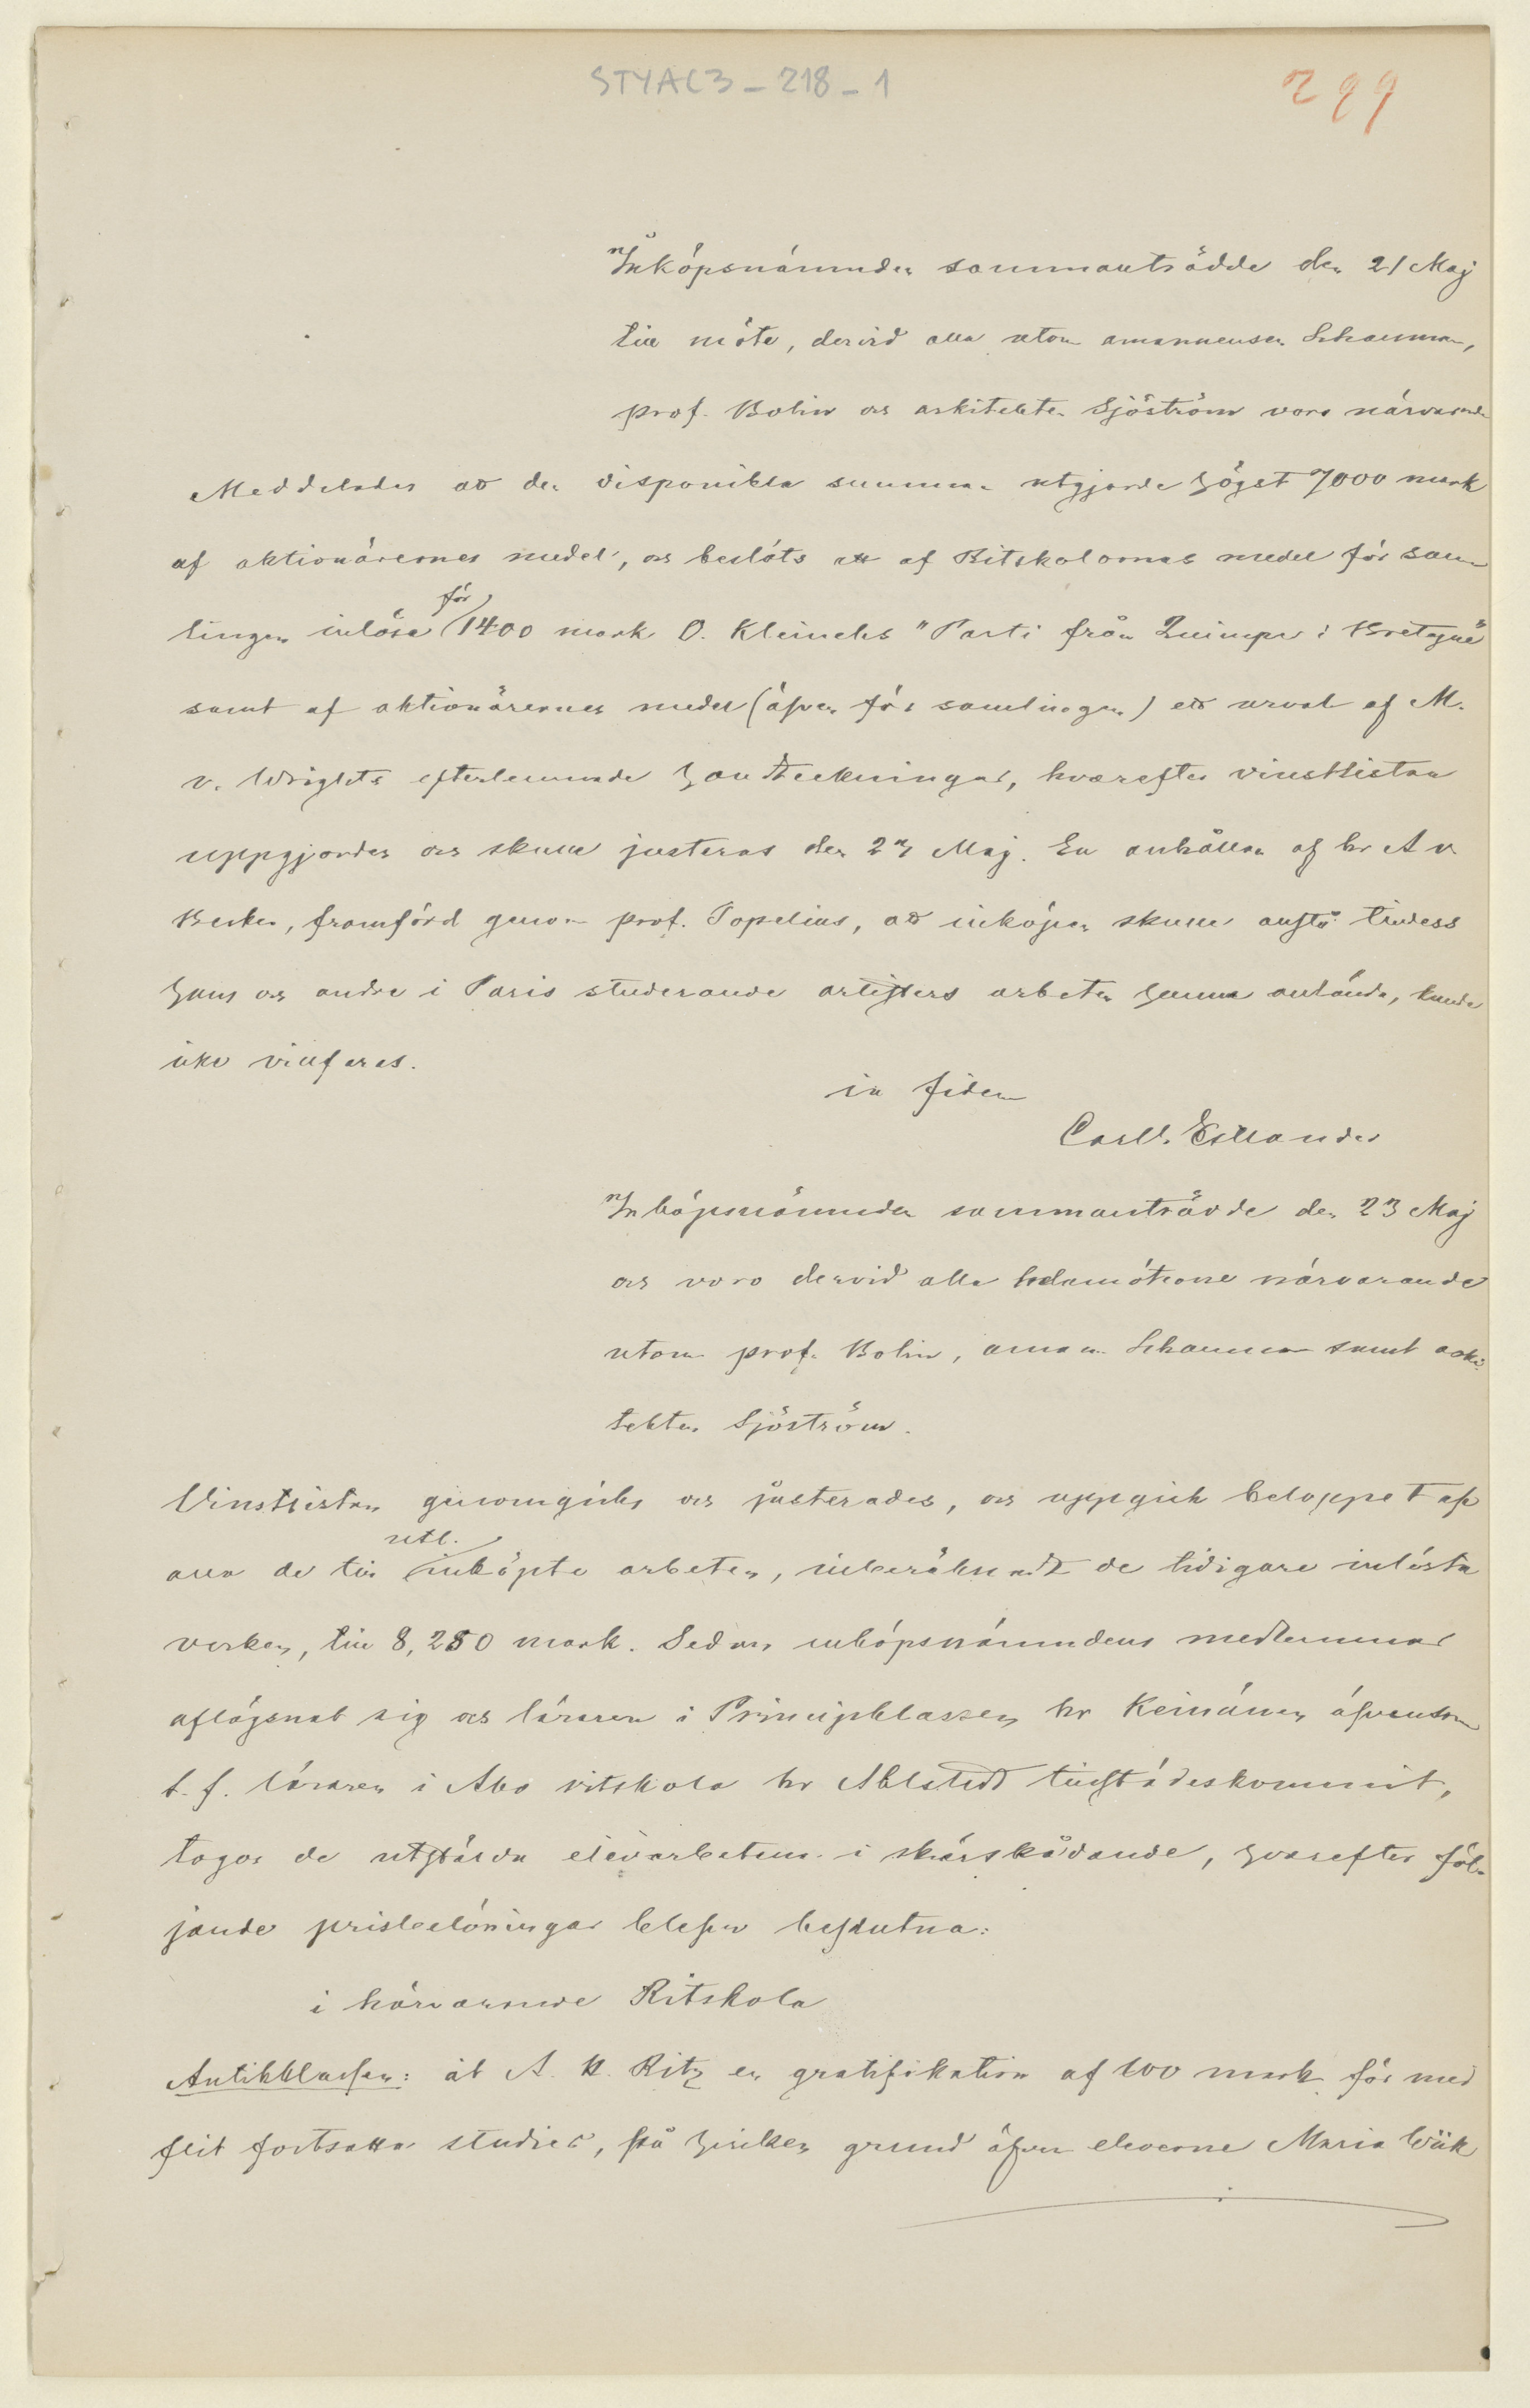 STYAC3-218-1
299
Inköpsnämnden sammanträdde den 21 Maj
till möte, dervid alla utom amanuensen Schauman,
prof. Bolin och arkitekten Sjöström voro närvarande
Meddelades att den disponibla summan utgjorde högst 7000 mark
af aktionärernes medel, och beslöts att af Ritskolornas medel för sam-
lingen inlösa för 1400 mark O. Kleinehs "Parti från Quimper i Bretagne"
samt af aktionärernes medel (äfven för samlingen) ett urval af M.
v. Wrights efterlemnade handteckningar, hvarefter vinstlistan
uppgjordes och skulle justeras den 23 Maj. En anhållan af hr A v
Becker, framförd genom prof. Topelius, att inköpen skulle anstå tilldess
hans och andre i Paris studerande artisters arbeten hunne anlända, kunde
icke villfaras.
in fidem
Carl G. Estlander
Inköpsnämnden sammanträdde den 23 Maj
och voro dervid alla ledamöterne närvarande
utom prof. Bolin, aman. Schauman samt arki-
tekten Sjöström.
Vinstlistan genomgicks och justerades, och uppgick beloppet af
alla de till utl. inköpte arbeten, inberäknadt de tidigare inlösta
verken, till 8,250 mark. Sedan inköpsnämndens medlemmar
aflägsnat sig och läraren i Principklassen hr Keinänen äfvensom
t. f. läraren i Åbo ritskola hr Ahlstedt tillstädeskommit,
togos de utstälda elevarbetena i skärskådande, hvarefter föl-
jande prisbelöningar blefvo beslutna:
i härvarande Ritskola
Antikklassen: åt A. K. Ritz en gratifikation af 100 mark för med
flit fortsatta studier, på hvilken grund äfven eleverne Maria Wiik